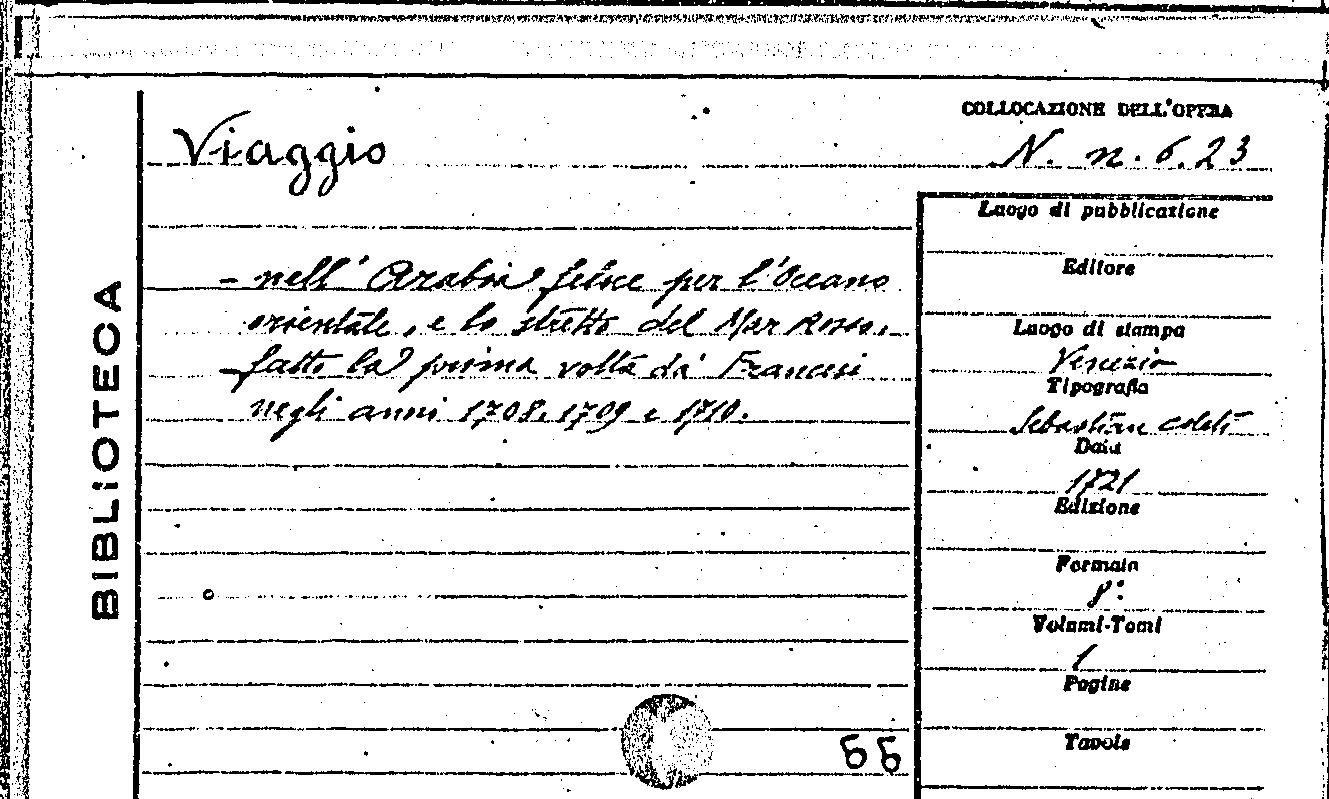 BIBLIOTECA
Viaggio
COLLOCAZIONE DELL'OPERA
N. n. 6. 23
- nell' Arabia felice per l'Oceano
orientale, e lo stretto del Mar Rosso.
- fatto la prima volta da' Francesi
negli anni 1708. 1709 e 1710.
Luogo di pubblicazione
Editore
Luogo di stampa
Venezia
Tipografia
Sebastian Coleti
Data
1721
Edizione
Formato
8°
Volumi-Tomi
1
Pagine
Tavole
55